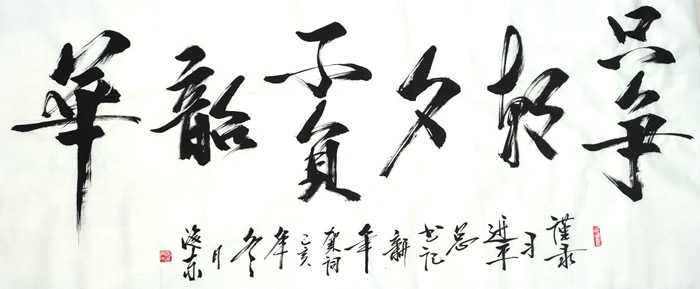 只争朝夕不负韶华
谨录习近平总书记新年贺词己亥年冬月海东